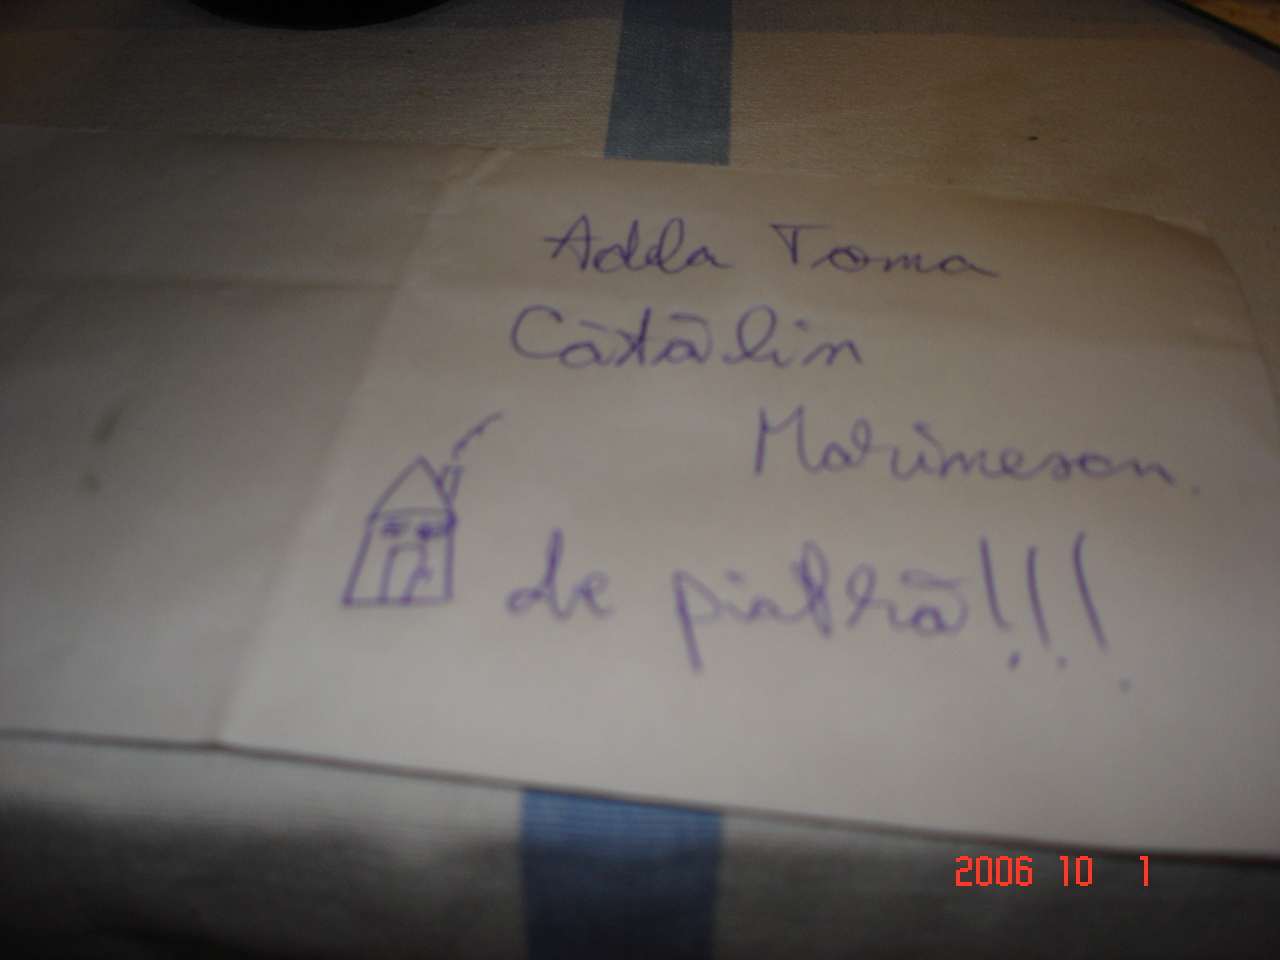 Adda Toma
Cătălin
Marimeson.
de piatră!!!
2006 10 1